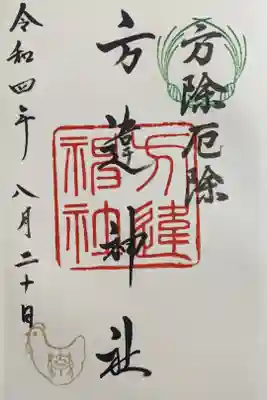 方除厄除
方違神社
方違神社
令和四年 八月二十日